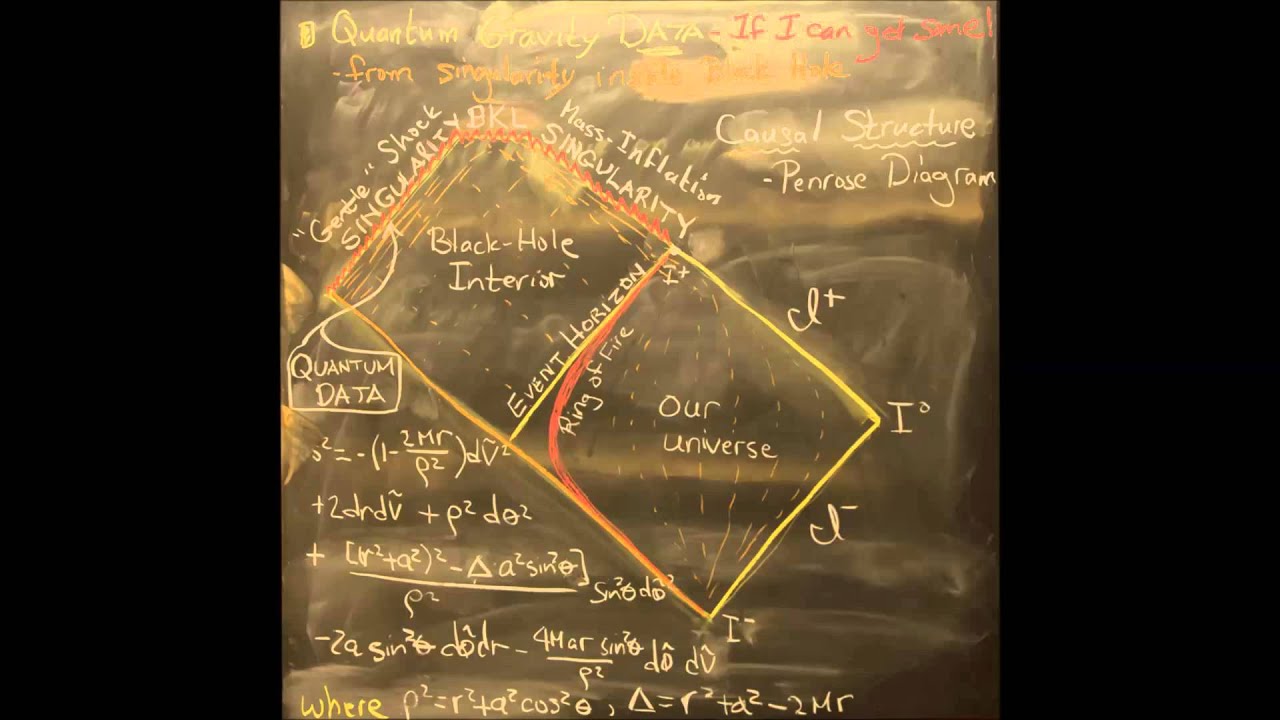 Quantum Gravity DATA - If I can get some!
- from singularity inside Black Hole
Causal Structure
- Penrose Diagram
"Gentle" Shock
SINGULARITY
BKL
Mass-Inflation
SINGULARITY
Black-Hole
Interior
QUANTUM
DATA
EVENT HORIZON
Ring of Fire
I⁺
ℐ⁺
I⁰
Our
universe
ℐ⁻
I⁻
²=-(1-2Mr/ρ²)dṼ²
+2drdṼ + ρ²dθ²
+ [(r²+a²)²-Δa²sin²θ]/ρ² sin²θdΦ̃²
-2a sin²θ dΦ̃dr - 4Mar sin²θ/ρ² dΦ̃ dṼ
where ρ²=r²+a²cos²θ, Δ=r²+a²-2Mr